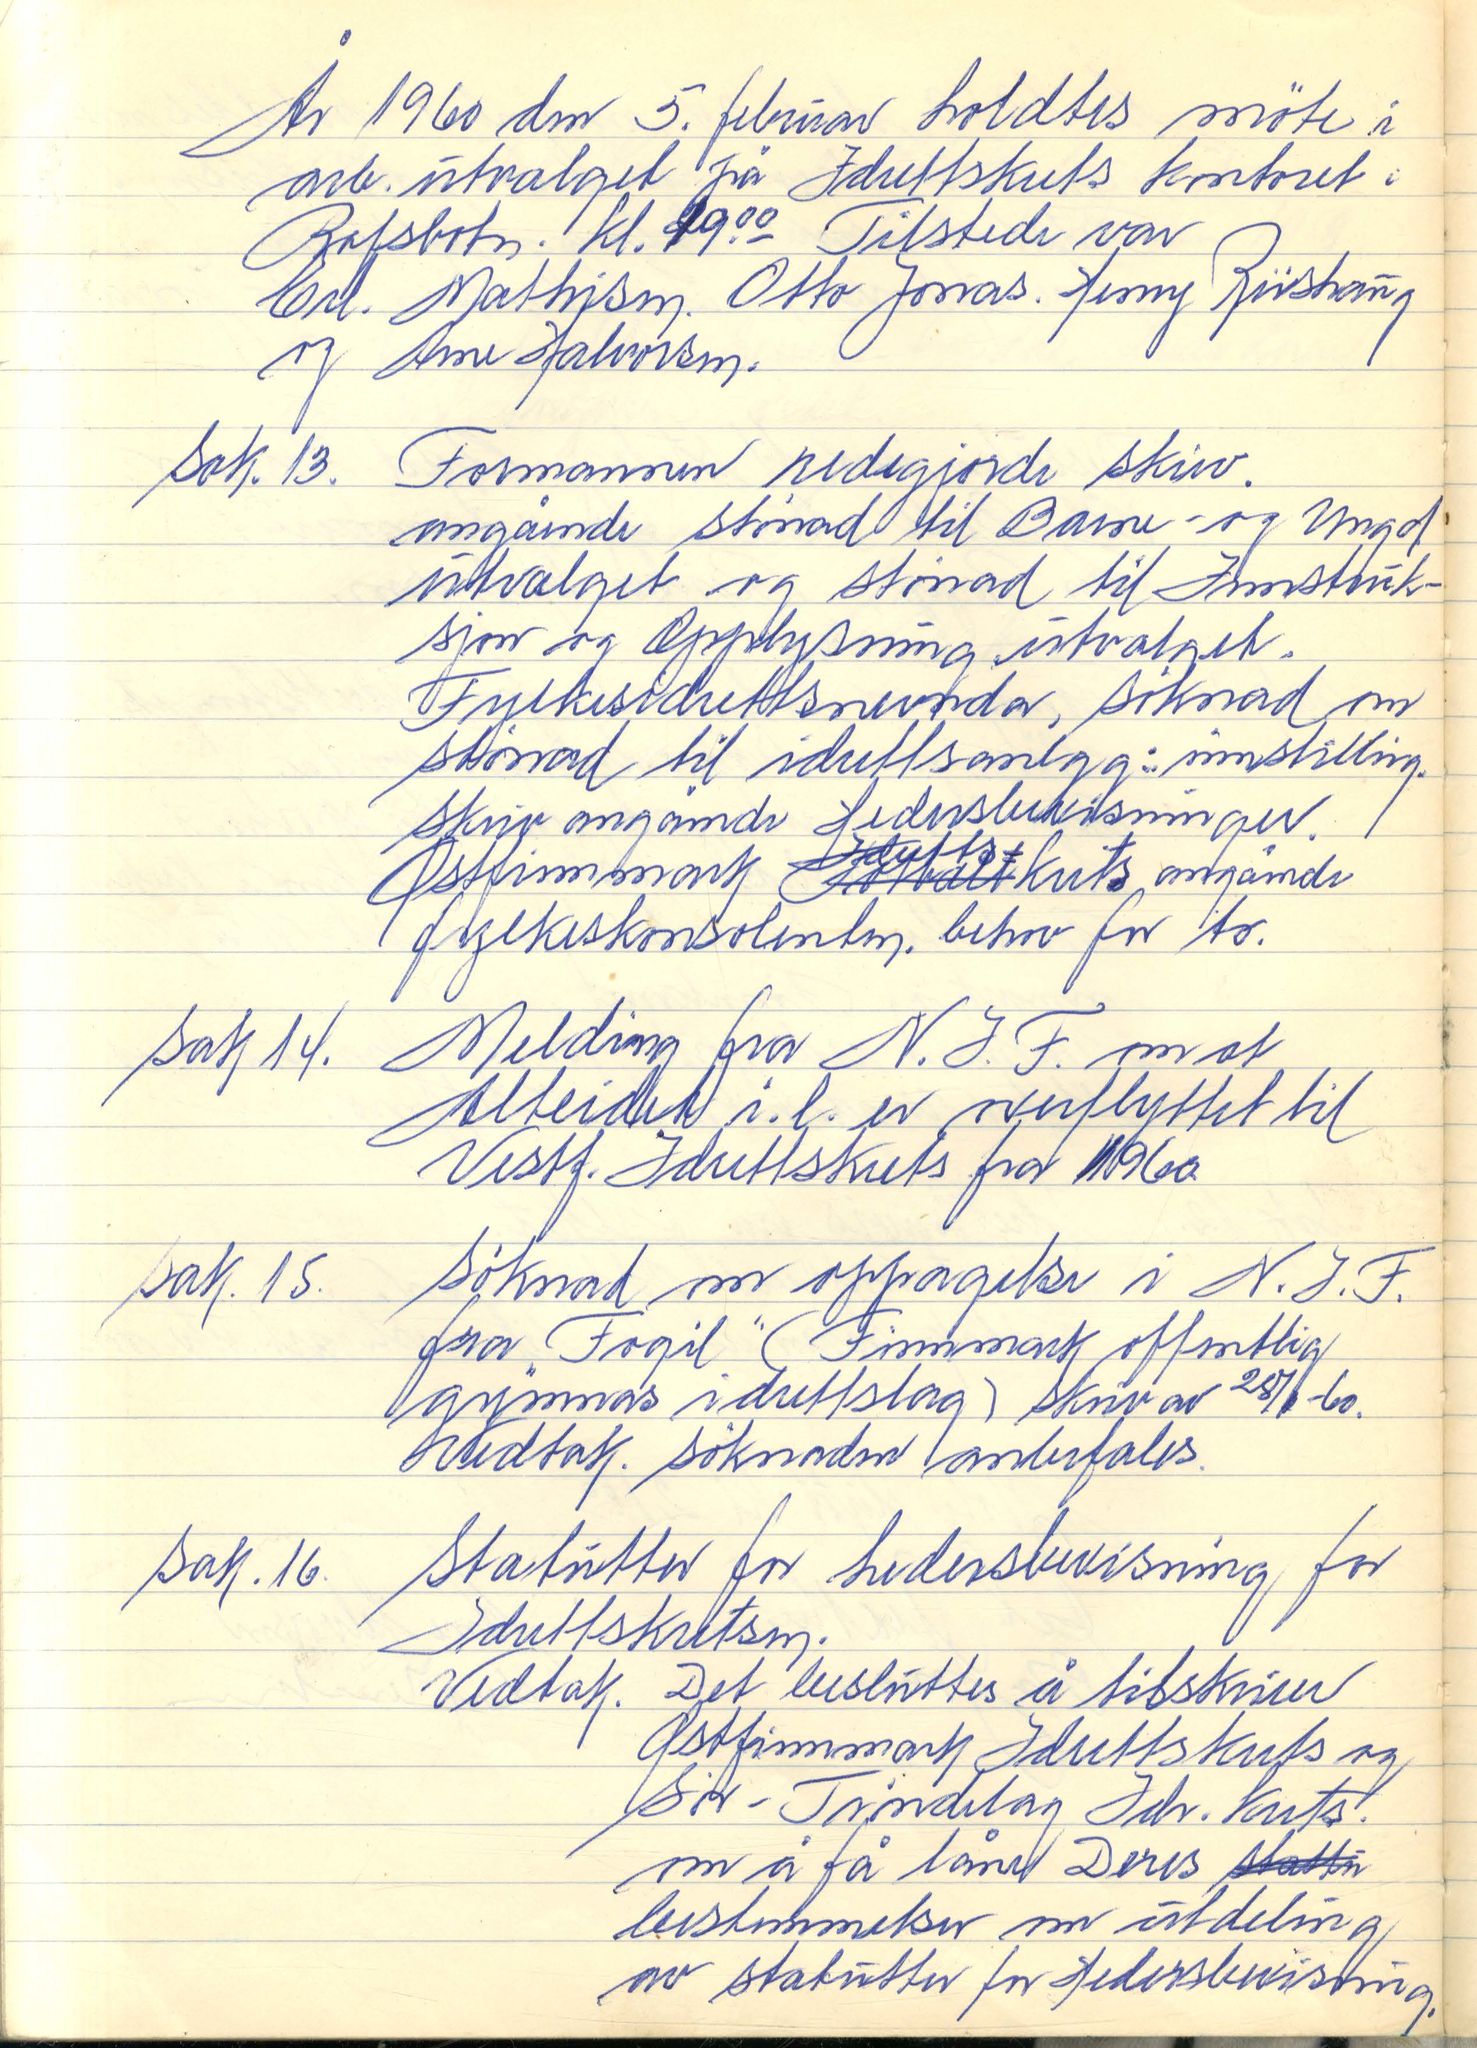 År 1960 den 5. februar holdtes möte i
arb. utvalget på Idrettskrets kontoret i
Rafsbotn. kl. 19.00 Tilstede var
Erl. Mathisen. Otto Jonas. Henry
og Arne Halvorsen.
Sak. 13. Formannen redegjorde skriv.
angående stönad til Barne- og Ungd
utvalget og stönad til Innstruk-
sjon og Opplysning utvalget.
Fylkesidrettsnevnda, söknad om
stönad til idrettsanlegg: innstilling.
skriv angående Hedersbevisninger.
Östfinnmark Idretts- krets angående
fylkeskonsolenten. behov for to.
Sak 14. Melding fra N.I.F. om at
Alteidet i.l. er overflyttet til
Vestf. Idrettskrets fra 1960
Sak. 15. Söknad om opptagelse i N.I.F.
fra "Fogil" (Finnmark offentlig
gymnas idrettslag) skriv av 28/1-60.
Vedtak. söknaden anbefales.
Sak. 16. Statutter for hedersbevisning for
Idrettskretsen.
Vedtak. Det besluttes å tilskriver
Östfinnmark Idrettskrets og
Sör-Tröndelag Idr. krets.
om å få låne Deres stattu
bestemmelser om utdeling
av statutter for Hedersbevisning.